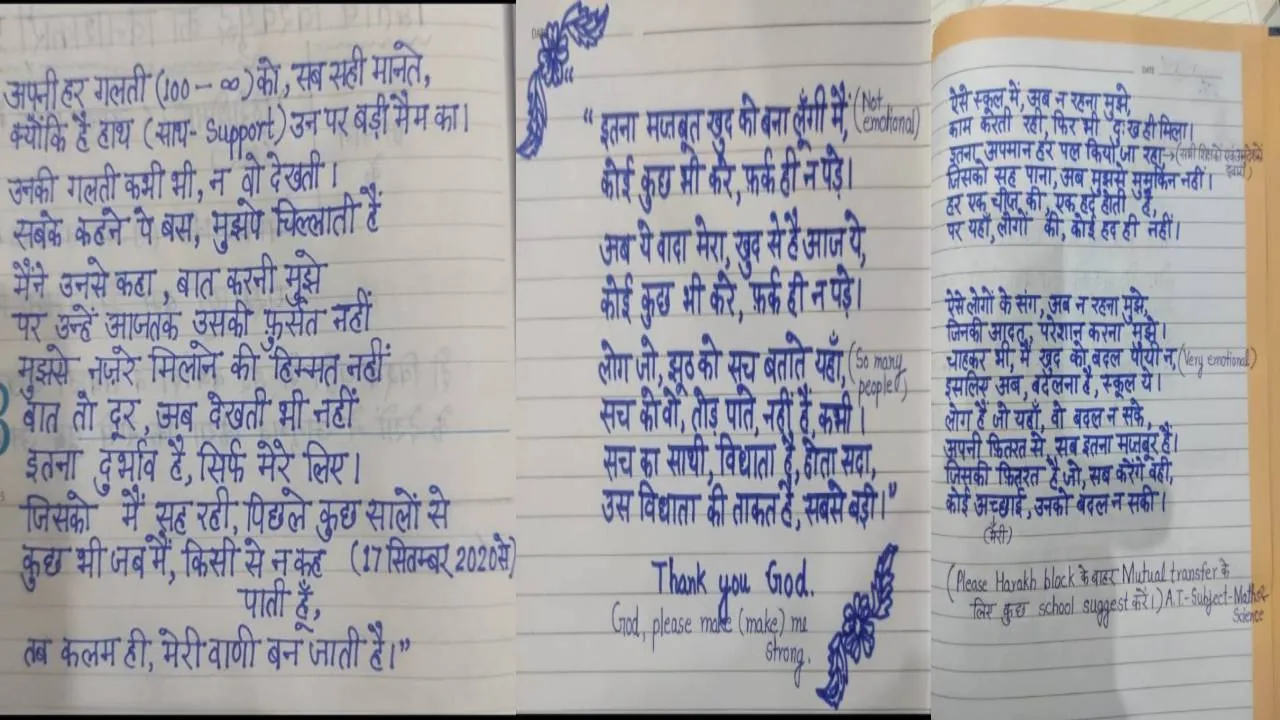 अपनी हर गलती (100 - ∞) को, सब सही मानते,
क्योंकि है हाथ (साथ- Support) उन पर बड़ी मैम का।
उनकी गलती कभी भी, न वो देखती।
सबके कहने पे बस, मुझपे चिल्लाती हैं
मैंने उनसे कहा, बात करनी मुझे
पर उन्हें आजतक उसकी फुर्सत नहीं
मुझसे नज़रे मिलाने की हिम्मत नहीं
बात तो दूर, अब देखती भी नहीं
इतना दुर्भाव है, सिर्फ मेरे लिए।
जिसको मैं सह रही, पिछले कुछ सालों से
कुछ भी जब मैं, किसी से न कह (17 सितम्बर 2020 से)
पाती हूँ,
तब कलम ही, मेरी वाणी बन जाती है।"
"इतना मजबूत खुद को बना लूँगी मैं, (Not emotional)
कोई कुछ भी करे, फ़र्क ही न पड़े।
अब ये वादा मेरा, खुद से है आज ये,
कोई कुछ भी करे, फ़र्क ही न पड़े।
लोग जो, झूठ को सच बताते यहाँ, (So many people)
सच को वो, तोड़ पाते, नहीं हैं, कभी।
सच का साथी, विधाता है, होता सदा,
उस विधाता की ताकत है, सबसे बड़ी।"
Thank you God.
God, please make (make) me
strong.
DATE
ऐसे स्कूल में, अब न रहना मुझे,
काम करती रही, फिर भी दुःख ही मिला।
इतना अपमान हर पल किया जा रहा,
जिसको सह पाना, अब मुझसे मुमकिन नहीं।
हर एक चीज की, एक हद होती है,
पर यहाँ, लोगों की, कोई हद ही नहीं।
ऐसे लोगों के संग, अब न रहना मुझे,
जिनकी आदत, परेशान करना मुझे।
चाहकर भी, मैं खुद को बदल पायी न, (Very emotional)
इसलिए अब, बदलना है, स्कूल ये।
लोग हैं जो यहाँ, वो बदल न सके,
अपनी फ़ितरत से, सब इतना मजबूर हैं।
जिसकी फ़ितरत है जो, सब करेंगे वही,
कोई अच्छाई, उनको बदल न सकी।
(मेरी)
(Please Harakh block के बाहर Mutual transfer के
लिए कुछ school suggest करें।) A.T-Subject-Maths &
Science